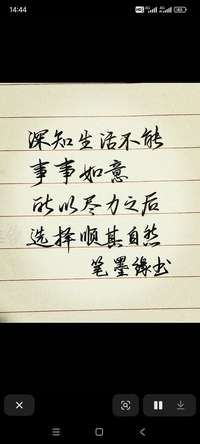 14:44
深知生活不能
事事如意
所以尽力之后
选择顺其自然
笔墨缘书